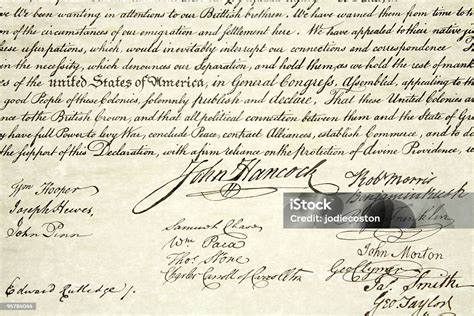 ve We been wanting in attentions to our Brittish brethren. We have warned them from time to ti
n of the circumstances of our emigration and settlement here. We have appealed to their native ju
these usurpations, which would inevitably interrupt our connections and correspondence
in the necessity, which denounces our Separation, and hold them, as we hold the rest of mank
es of the united States of America, in General Congress, Assembled, appealing to the
good People of these Colonies, solemnly publish and declare, That these United Colonies a
nce to the British Crown, and that all political connection between them and the State of Gr
y have full Power to levy War, conclude Peace, contract Alliances, establish Commerce, and to do
the support of this Declaration, with a firm reliance on the protection of divine Providence, we
John Hancock
Wm Hooper
Joseph Hewes,
John Penn
Edward Rutledge /.
Samuel Chase
Wm Paca
Thos Stone
Charles Carroll of Carrollton
Robt Morris
Benjamin Rush
Franklin
John Morton
Geo Clymer
Jas Smith
Geo Taylor
iStock
Credit: jodiecoston